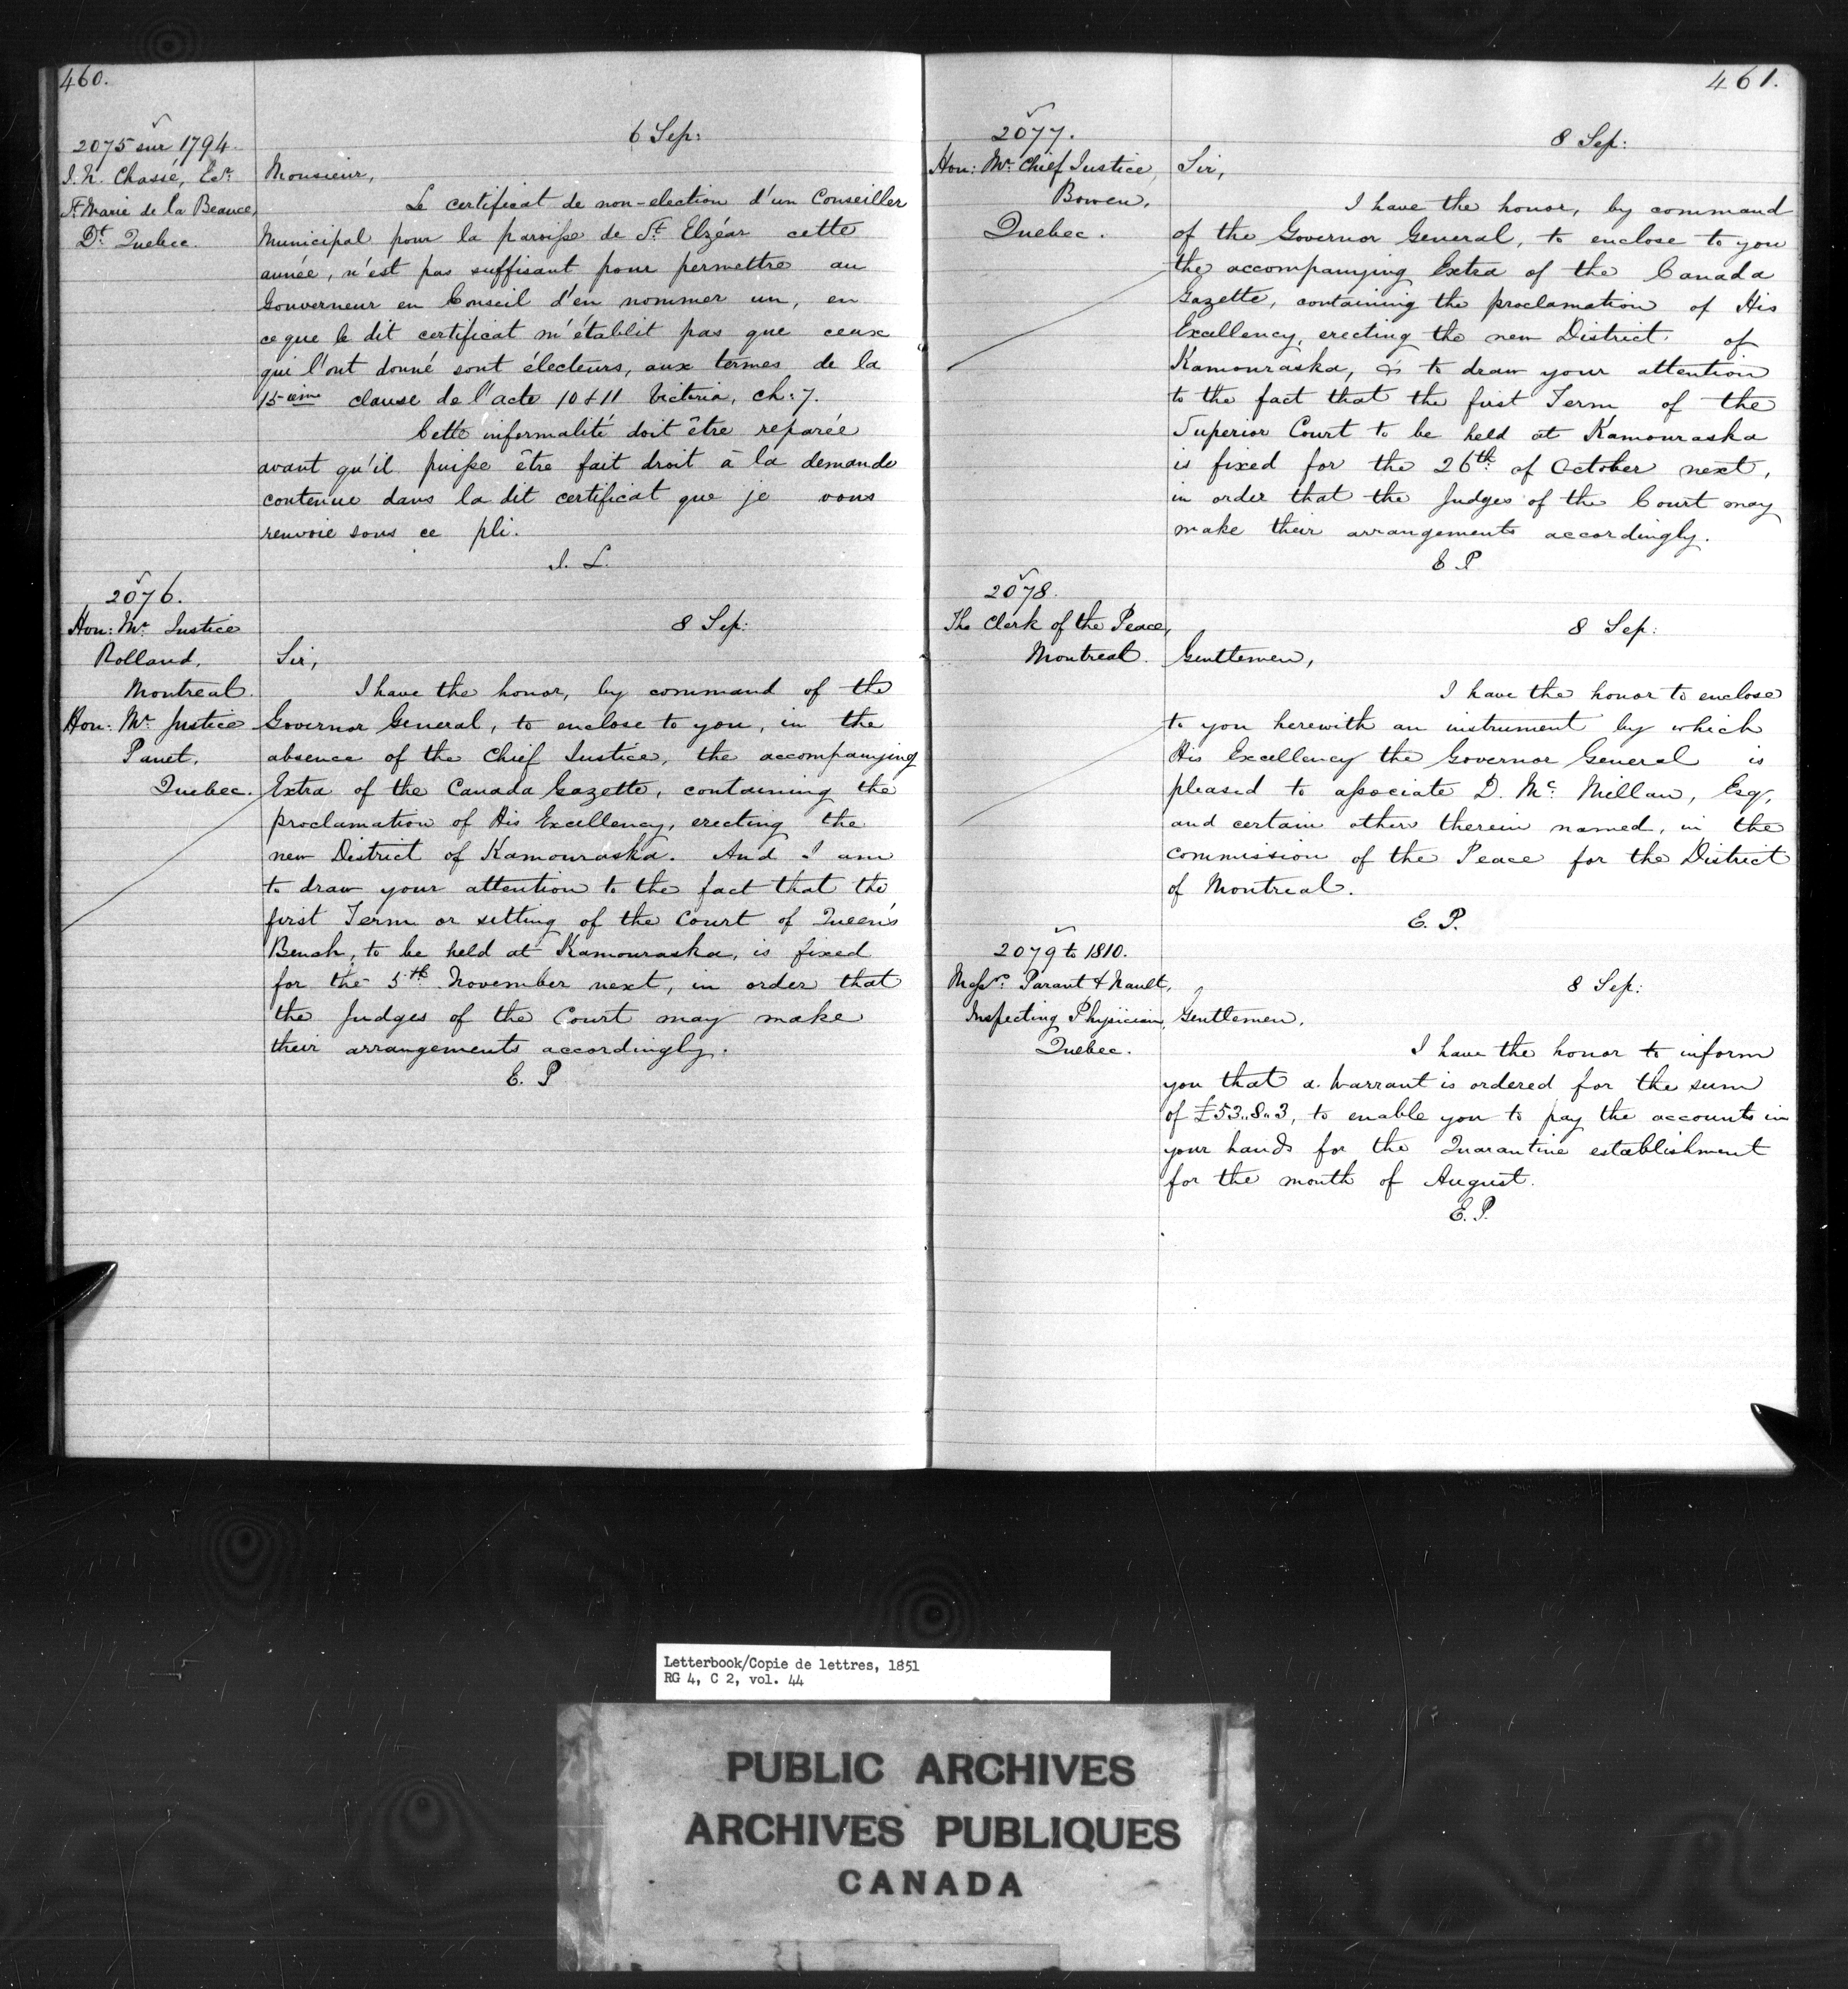 460.
2075 sur 1794.
J. N. Chassé, Ecr.
St. Marie de la Beauce,
Dt. Quebec.
6 Sep:
Monsieur,
Le certificat de non-election d'un Conseiller
Municipal pour la paroisse de St. Elzéar cette
année, n'est pas suffisant pour permettre au
Gouverneur en Conseil d'en nommer un, en
ce que le dit certificat n'établit pas que ceux
qui l'ont donné sont électeurs, aux termes de la
15-ième clause de l'acte 10 & 11 Victoria, ch: 7.
Cette informalité doit être reparée
avant qu'il puisse être fait droit à la demande
contenue dans la dit certificat que je vous
renvoie sous ce pli.
J. L.
2076.
Hon: Mr. Justice
Rolland,
Montreal.
Hon: Mr. Justice
Panet,
Quebec.
8 Sep:
Sir,
I have the honor, by command of the
Governor General, to enclose to you, in the
absence of the Chief Justice, the accompanying
Extra of the Canada Gazette, containing the
proclamation of His Excellency, erecting the
new District of Kamouraska. And I am
to draw your attention to the fact that the
first Term or sitting of the Court of Queen's
Bench, to be held at Kamouraska, is fixed
for the 5th November next, in order that
the Judges of the Court may make
their arrangements accordingly.
E. P.
461.
2077.
Hon: Mr. Chief Justice,
Bowen,
Quebec.
8 Sep:
Sir,
I have the honor, by command
of the Governor General, to enclose to you
the accompanying Extra of the Canada
Gazette, containing the proclamation of His
Excellency, erecting the new District of
Kamouraska, & to draw your attention
to the fact that the first Term of the
Superior Court to be held at Kamouraska
is fixed for the 26th of October next,
in order that the Judges of the Court may
make their arrangements accordingly.
E. P.
2078.
The Clerk of the Peace,
Montreal.
8 Sep:
Gentlemen,
I have the honor to enclose
to you herewith an instrument by which
His Excellency the Governor General is
pleased to associate D. Mc. Millan, Esqr,
and certain others therein named, in the
commission of the Peace for the District
of Montreal.
E. P.
2079 to 1810.
Messrs. Parant & Nault,
Inspecting Physician,
Quebec.
8 Sep:
Gentlemen,
I have the honor to inform
you that a Warrant is ordered for the sum
of £53..8..3, to enable you to pay the accounts in
your hands for the Quarantine establishment
for the month of August.
E. P.
Letterbook/Copie de lettres, 1851
RG 4, C 2, vol. 44
PUBLIC ARCHIVES
ARCHIVES PUBLIQUES
CANADA